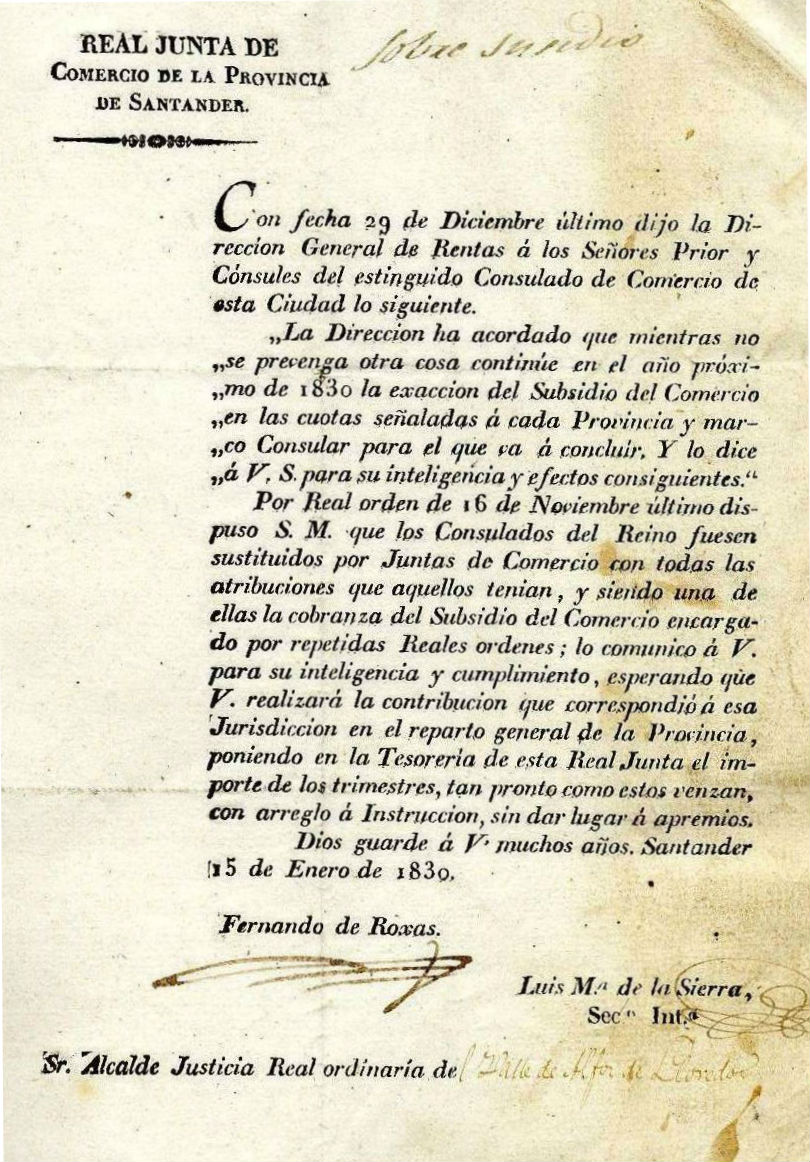 REAL JUNTA DE
COMERCIO DE LA PROVINCIA
DE SANTANDER.
Sobre
Con fecha 29 de Diciembre último dijo la Di-
reccion General de Rentas á los Señores Prior y
Cónsules del estinguido Consulado de Comercio de
esta Ciudad lo siguiente.
„La Direccion ha acordado que mientras no
„se prevenga otra cosa continúe en el año próxi-
„mo de 1830 la exaccion del Subsidio del Comercio
„en las cuotas señaladas á cada Provincia y mar-
„co Consular para el que va á concluir. Y lo dice
„á V. S. para su inteligencia y efectos consiguientes.“
Por Real orden de 16 de Noviembre último dis-
puso S. M. que los Consulados del Reino fuesen
sustituidos por Juntas de Comercio con todas las
atribuciones que aquellos tenian, y siendo una de
ellas la cobranza del Subsidio del Comercio encarga-
do por repetidas Reales ordenes; lo comunico á V.
para su inteligencia y cumplimiento, esperando que
V. realizará la contribucion que correspondió á esa
Jurisdiccion en el reparto general de la Provincia,
poniendo en la Tesorería de esta Real Junta el im-
porte de los trimestres, tan pronto como estos venzan,
con arreglo á Instruccion, sin dar lugar á apremios.
Dios guarde á V. muchos años. Santander
15 de Enero de 1830.
Fernando de Roxas.
Luis M.ª de la Sierra,
Sec.º Int.º
Sr. Alcalde Justicia Real ordinaría del Valle de Alfoz de Lloredo